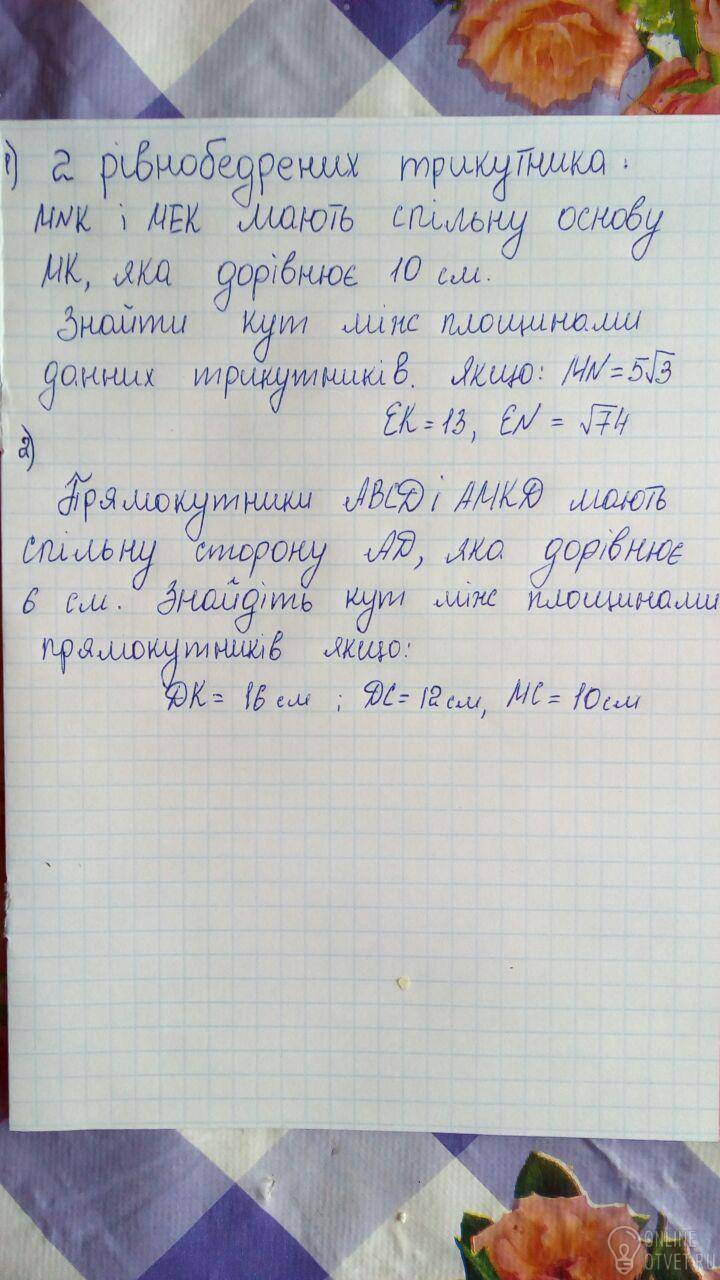 1) 2 рівнобедрених трикутника:
MNK і MEK мають спільну основу
MK, яка дорівнює 10 см.
Знайти кут між площинами
данних трикутників. якщо: MN = 5√3
EK = 13, EN = √74
2)
Прямокутники ABCD і AMKD мають
спільну сторону AD, яка дорівнює
6 см. Знайдіть кут між площинами
прямокутників якщо:
DK = 16 см ; DC = 12 см, MC = 10 см
ONLINE
OTVET.RU